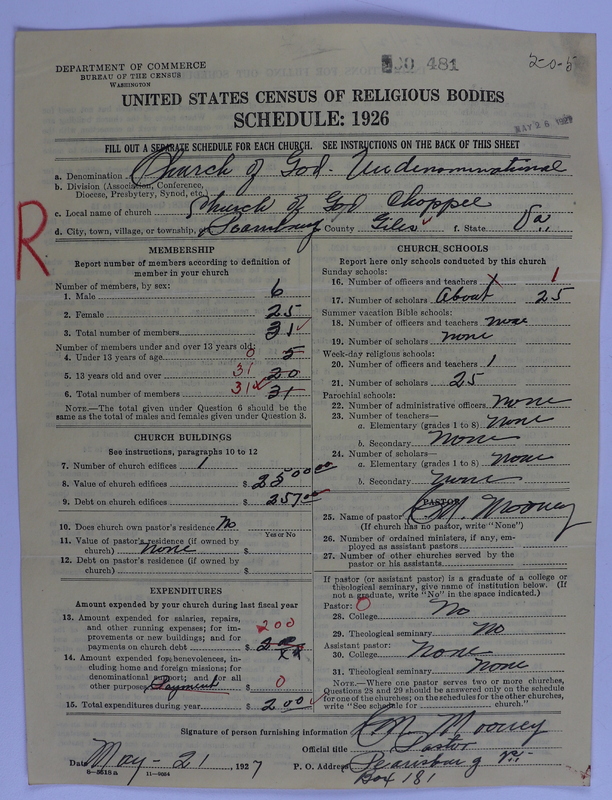 DEPARTMENT OF COMMERCE
BUREAU OF THE CENSUS
WASHINGTON
481
2-0-5
UNITED STATES CENSUS OF RELIGIOUS BODIES
SCHEDULE: 1926
MAY 26 1927
FILL OUT A SEPARATE SCHEDULE FOR EACH CHURCH. SEE INSTRUCTIONS ON THE BACK OF THIS SHEET
a. Denomination Church of God - Undenominational
b. Division (Association, Conference, Diocese, Presbytery, Synod, etc.)
c. Local name of church Church of God Choppel
d. City, town, village, or township, County Giles f. State Va.
R
MEMBERSHIP
Report number of members according to definition of member in your church
Number of members, by sex:
1. Male 6
2. Female 25
3. Total number of members 31
Number of members under and over 13 years old:
4. Under 13 years of age 0 5
5. 13 years old and over 31 20
6. Total number of members 31 31
NOTE.—The total given under Question 6 should be the same as the total of males and females given under Question 3.
CHURCH BUILDINGS
See instructions, paragraphs 10 to 12
7. Number of church edifices 1
8. Value of church edifices $ 250000
9. Debt on church edifices $ 25700
10. Does church own pastor's residence? No
Yes or No
11. Value of pastor's residence (if owned by church) none $
12. Debt on pastor's residence (if owned by church) $
EXPENDITURES
Amount expended by your church during last fiscal year
13. Amount expended for salaries, repairs, and other running expenses; for improvements or new buildings; and for payments on church debt $ 200
14. Amount expended for benevolences, including home and foreign missions; for denominational support; and for all other purposes Payment $ 0
15. Total expenditures during year $ 200
CHURCH SCHOOLS
Report here only schools conducted by this church
Sunday schools:
16. Number of officers and teachers 1
17. Number of scholars About 25
Summer vacation Bible schools:
18. Number of officers and teachers none
19. Number of scholars none
Week-day religious schools:
20. Number of officers and teachers 1
21. Number of scholars 25
Parochial schools:
22. Number of administrative officers none
23. Number of teachers—
a. Elementary (grades 1 to 8) none
b. Secondary none
24. Number of scholars—
a. Elementary (grades 1 to 8) none
b. Secondary none
PASTOR
25. Name of pastor C M. Mooney
(If church has no pastor, write "None")
26. Number of ordained ministers, if any, employed as assistant pastors
27. Number of other churches served by the pastor or his assistants
If pastor (or assistant pastor) is a graduate of a college or theological seminary, give name of institution below. (If not a graduate, write "No" in the space indicated.)
Pastor: 0
28. College No
29. Theological seminary No
Assistant pastor:
30. College None
31. Theological seminary None
NOTE.—Where one pastor serves two or more churches, Questions 28 and 29 should be answered only on the schedule for one of the churches; on the schedules for the other churches, write "See schedule for church."
Signature of person furnishing information C M Mooney
Official title Pastor
Date May - 21, 1927
P. O. Address Pearisburg Va.
Box 181
8—5518a 11—9054